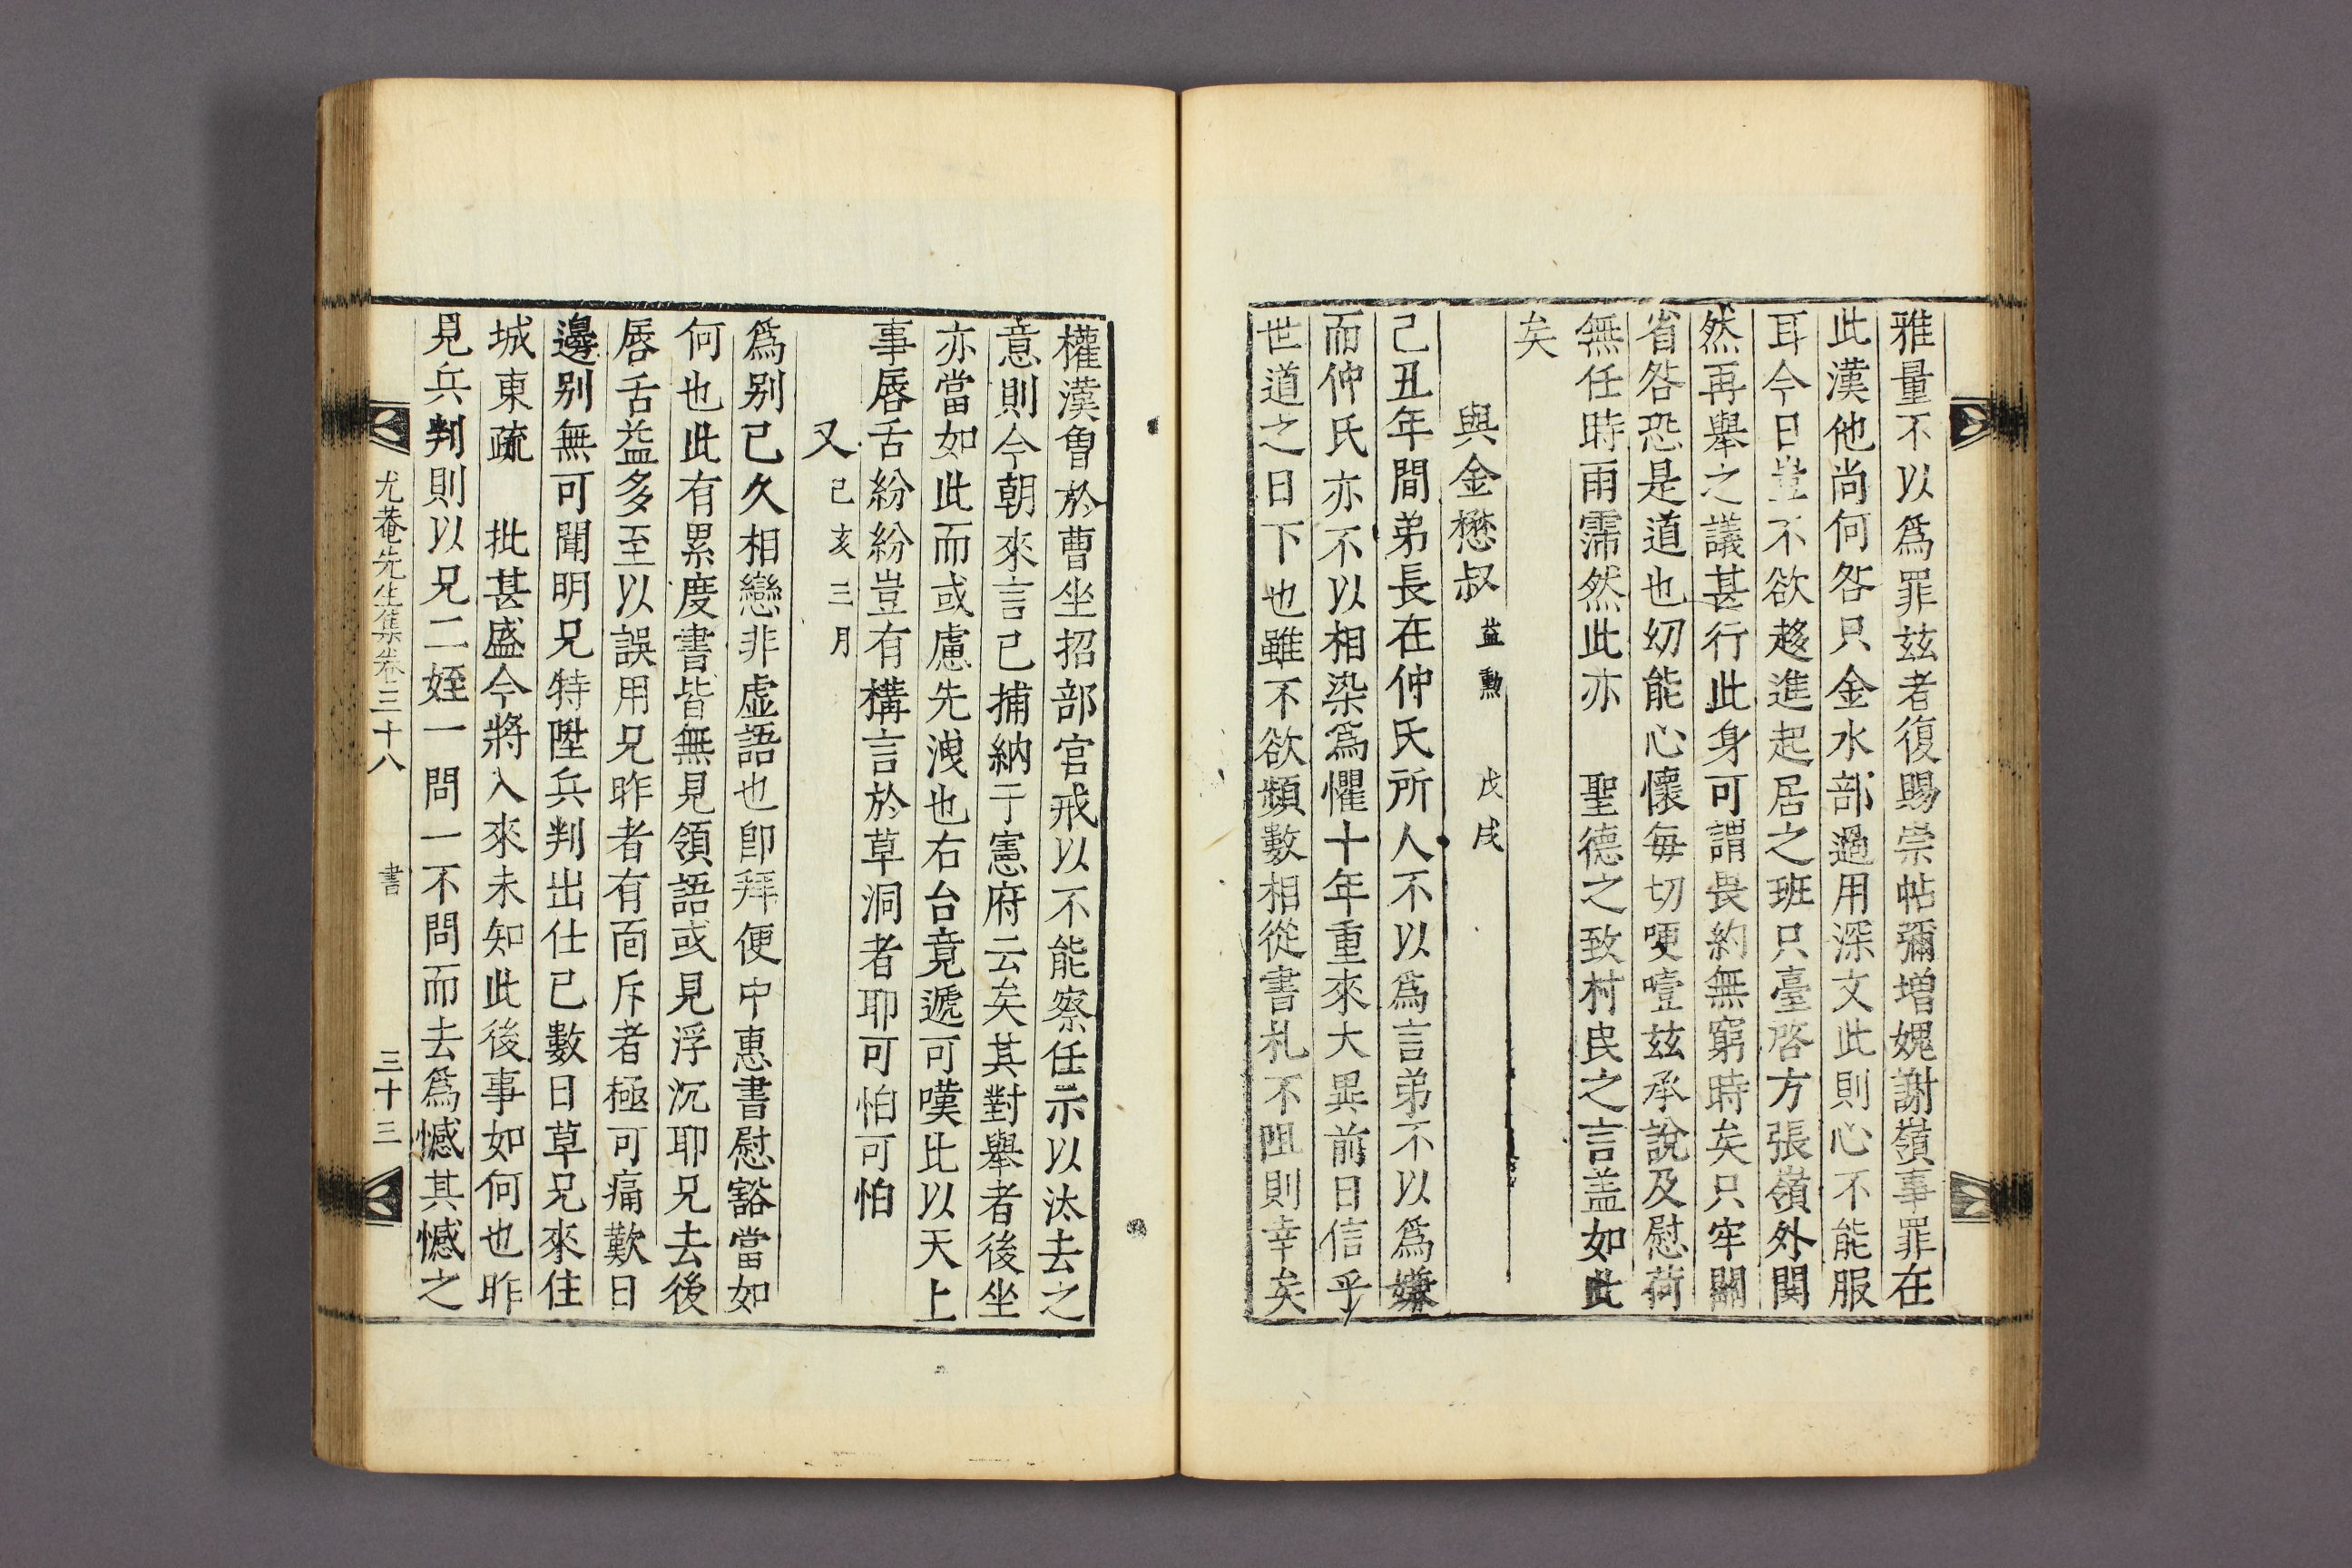 雅量不以爲罪玆者復賜崇帖彌增媿謝嶺事罪在
此漢他尚何咎只金水部過用深文此則心不能服
耳今日豈不欲趍進起居之班只臺啓方張嶺外関
然再舉之議甚行此身可謂畏約無窮時矣只牢關
省咎恐是道也幼能心懷每切哽噎玆承說及慰荷
無任時雨霈然此亦 聖德之致村民之言盖如此
矣
與金懋叔 益勳 戊戌
己丑年間弟長在仲氏所人不以爲言弟不以爲嫌
而仲氏亦不以相染爲懼十年重來大異前日信乎
世道之日下也雖不欲頻數相從書札不阻則幸矣
權漢魯於曹坐招部官戒以不能察任示以汰去之
意則今朝來言已捕納于憲府云矣其對舉者後坐
亦當如此而或慮先洩也右台竟遞可嘆比以天上
事唇舌紛紛豈有構言於草洞者耶可怕可怕
又 己亥三月
爲别已久相戀非虛語也卽拜便中惠書慰豁當如
何也此有累度書皆無見領語或見浮沉耶兄去後
唇舌益多至以誤用兄昨者有面斥者極可痛歎日
邊别無可聞明兄特陞兵判出仕已數日草兄來住
城東疏 批甚盛今將入來未知此後事如何也昨
見兵判則以兄二姪一問一不問而去爲憾其憾之
尤菴先生集卷三十八 書 三十三